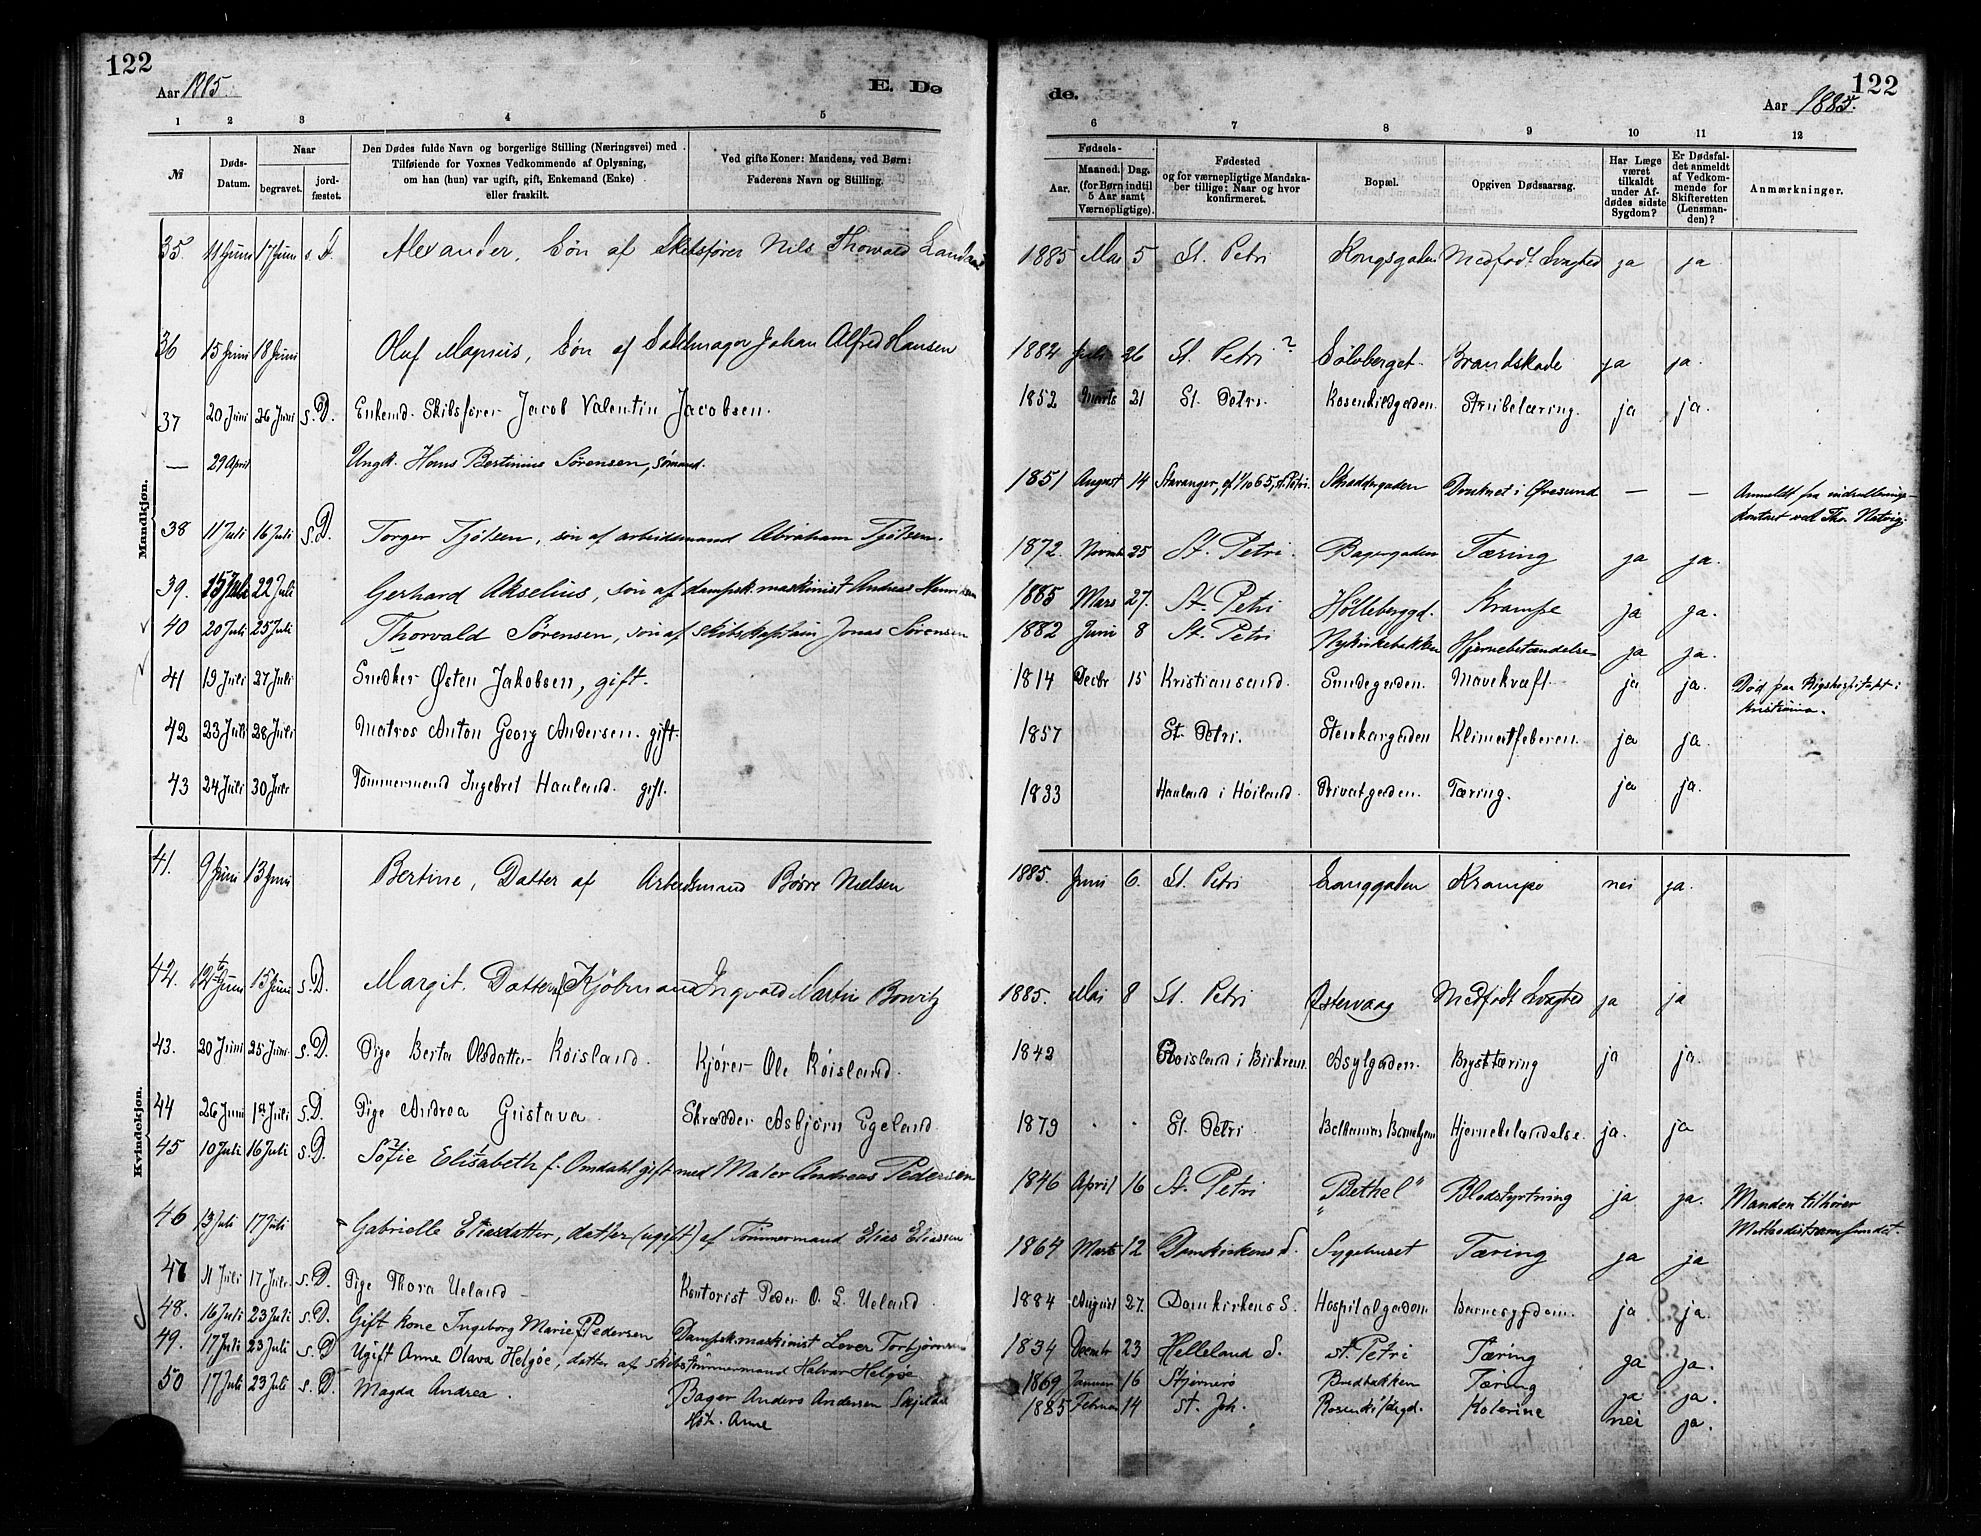 122
Aar 1885.
E. De
1 2 3 4 5
№
Døds-Datum.
Naar
begravet.
jord-fæstet.
Den Dødes fulde Navn og borgerlige Stilling (Næringsvei) med
Tilføiende for Voxnes Vedkommende af Oplysning,
om han (hun) var ugift, gift, Enkemand (Enke)
eller fraskilt.
Ved gifte Koner: Mandens, ved Børn:
Faderens Navn og Stilling.
Mandkjøn.
35. 11 Juni 17 Juni s. D. Alexander, Søn af Skibsfører Nils Thorvald
36 15 Juni 18 Juni Oluf Magnus, Søn af Johan Alfred Hansen
37 20 Juni 26 Juni s. D. Enkemd. Skibsfører Jacob Valentin Jacobsen.
— 29 April Ungk. Hans Bertinius Sørensen, sømand.
38 11 Juli 16 Juli s. D. Torger Tjølsen, søn af arbeidsmand Abraham Tjølsen.
39. 15 Juli 22 Juli Gerhard Akselius, søn af dampsk. maskinist Andreas Henriksen
40 20 Juli 25 Juli Thorvald Sørensen, søn af skibskaptain Jonas Sørensen
41 19 Juli 27 Juli Snedker Østen Jakobsen, gift.
42 23 Juli 28 Juli Matros Anton Georg Andersen. gift.
43 24 Juli 30 Juli Tømmermand Ingebret Haaland. gift.
Kvindekjøn.
41. 9 Juni 13 Juni Bertine, Datter af Arbeidsmand Børre Nielsen
42. 12 Juni 15 Juni s. D. Margit. Datter af Kjøbmand Ingvald Martin
43. 20 Juni 25 Juni s. D. Pige Berta Olsdatter Røisland. Kjører Ole Røisland.
44 26 Juni 1st Juli s. D. Pige Andrea Gustava Skrædder Asbjørn Egeland.
45 10 Juli 16 Juli s. D. Sofie Elisabeth f. Omdahl gift med Maler Andreas Pedersen
46 13 Juli 17 Juli Gabrielle Eliasdatter, datter (ugift) af Tømmermand Elias Eliassen
47 11 Juli 17 Juli s. D. Pige Thora Ueland Kontorist Peder O. L. Ueland.
48. 16 Juli 23 Juli s. D. Gift kone Ingeborg Marie Pedersen Dampsk. maskinist Torbjørnsen
49. 17 Juli 23 Juli s. D. Ugift Anne Olava Helgøe, datter af skibstømmermand Halvor Helgøe
50 17 Juli 23 Juli s. D. Magda Andrea. Bager Anders Andersen
Anne
122
Aar 1885.
de.
6 7 8 9 10 11 12
Fødsels-
Aar.
Maaned. Dag.
(for Børn indtil
5 Aar samt
Værnepligtige).
Fødested
og for værnepligtige Mandska-
ber tillige: Naar og hvor
konfirmeret.
Bopæl.
Opgiven Dødsaarsag.
Har Læge
været
tilkaldt
under Af-
dødes sidste
Sygdom?
Er Dødsfal-
det anmeldt
af Vedkom-
mende for
Skifteretten
(Lensman-
den)?
Anmærkninger.
1885 Mai 5 St. Petri Kongsgaden Medfødt Svaghed ja ja
1882 26 St. Petri? Sølvberget. Brandskade ja ja.
1852 Marts 21 St. Petri. Rosenkildgaden. Strubetæring. ja ja.
1851 August 14 Stavanger, St. Petri. Skræddergaden Druknet i Øresund — — Anmeldt fra indrullerings-
kontoret ved Thv. Natvig.
1872. Novembr 25 St. Petri. Bagergaden Tæring ja ja.
1885 Mars 27. St. Petri Hølleberggd. Krampe ja ja.
1882 Juni 8 St. Petri Nykirkebakken Hjernebetændelse ja ja.
1814 Decbr 15 Kristiansand. Smedegaden. Mavekræft. ja ja. Død paa Rigshospitalet i
Kristiania.
1857 St. Petri. Stenkargaden Klimatfeberen. ja ja.
1833 Haaland i Høiland. Privatgaden. Tæring. ja ja.
1885. Juni 6. St. Petri Langgaden Krampe nei ja.
1885. Mai 8 St. Petri Østervaag Medfødt Svaghed ja ja
1842 Røisland i Birkrem. Asylgaden. Brysttæring ja ja.
1879 St. Petri. Bethanias Barnehjem Hjernebetændelse. ja. ja
1846 April 16 St. Petri "Bethel" Blodstyrtning ja ja. Manden tilhører
Methodistsamfundet.
1864 Marts 12 Domkirkens S. Sygehuset Tæring ja ja
1884 August 27. Domkirkens S. Hospitalgaden Barnesygdom. ja ja.
1834 Decembr 23 Helleland S. St. Petri Tæring ja ja.
1869 Januar 16 Stjernerø Bredbakken Tæring ja ja.
1885 Februar 14 St. Joh. Rosenkildegd. Kolerine nei ja.